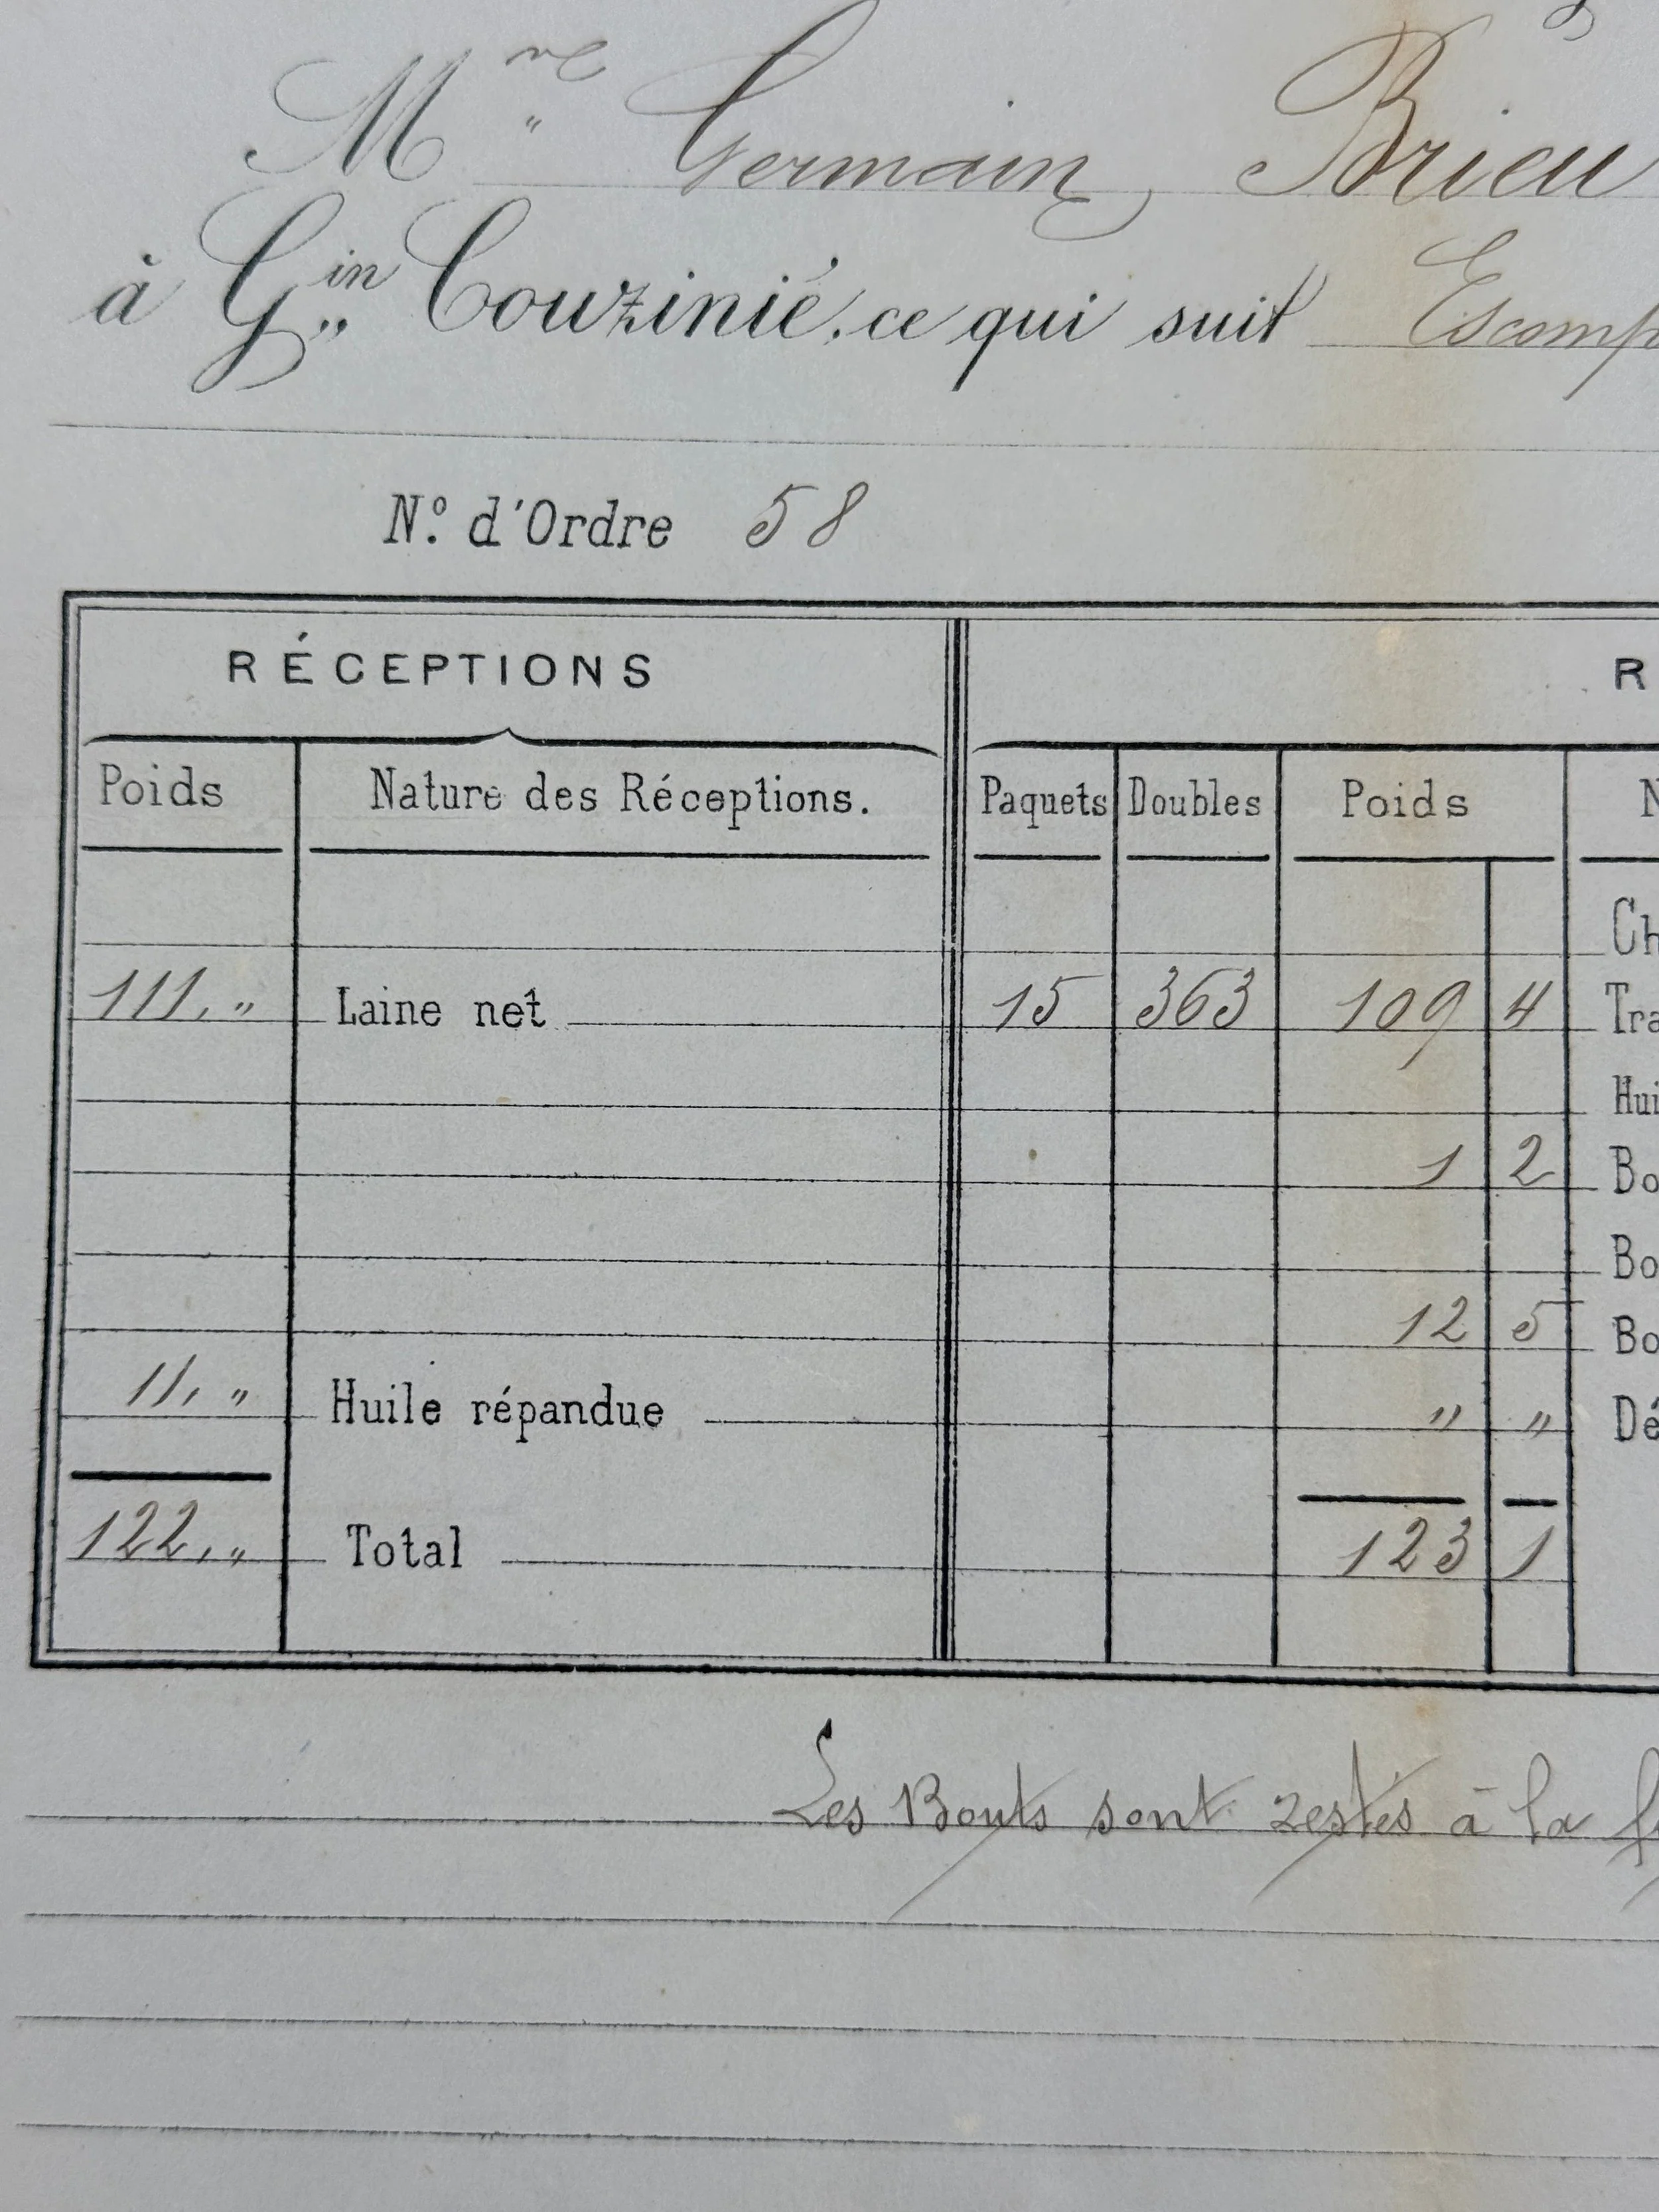 Mme Germain Brieu
à Gin Couzinié, ce qui suit Escomp
N.º d'Ordre 58
RÉCEPTIONS R
Poids Nature des Réceptions. Paquets Doubles Poids N
Ch
111, " Laine net 15 363 109 4 Tra
Hui
1 2 Bo
Bo
12 5 Bo
11, " Huile répandue " " Dé
122, " Total 123 1
Les Bouts sont restés à la f